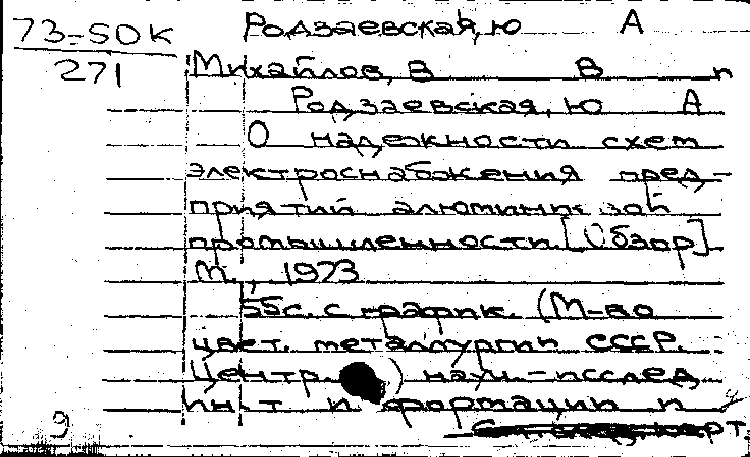 Родзаевская, Ю А
73-50К
271
Михайлов, В В и
Родзаевская, Ю А
О надежности схем
электроснабжения пред-
приятий алюминиевой
промышленности. [Обзор]
М., 1973
55с. с график. (М-во
цвет. металлургии СССР.
Центр. ) науч.-исслед
ин-т информации и
9 карт.